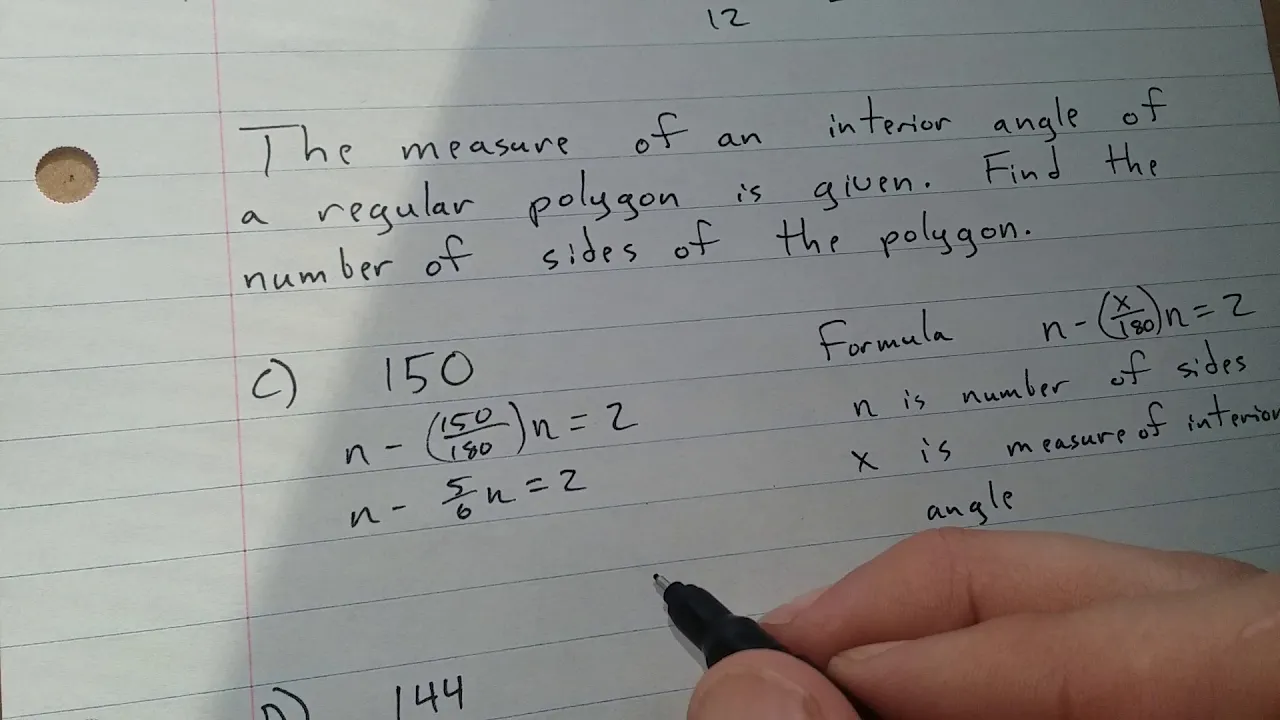 12
The measure of an interior angle of
a regular polygon is given. Find the
number of sides of the polygon.
C) 150
n - (150/180)n = 2
n - 5/6 n = 2
Formula n - (x/180)n = 2
n is number of sides
x is measure of interior
angle
D) 144